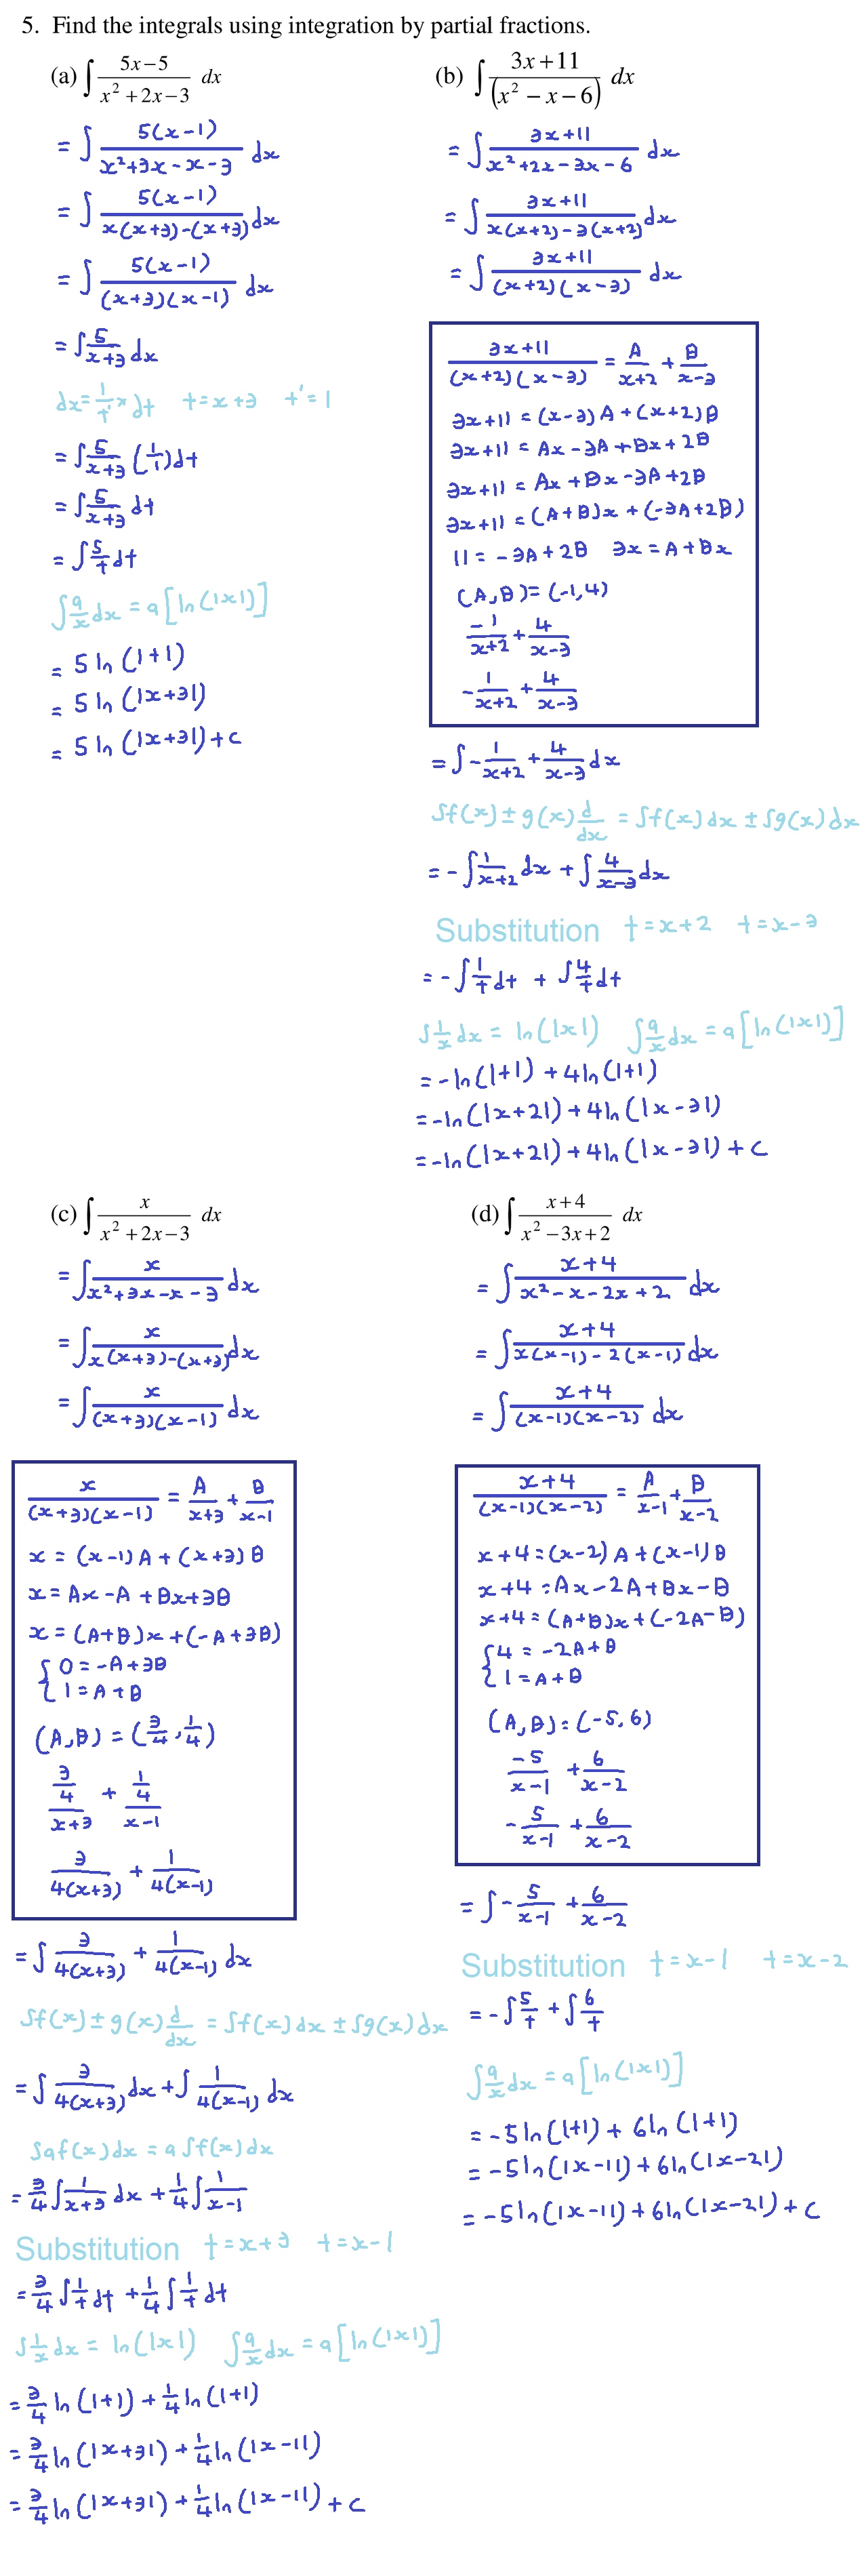 5. Find the integrals using integration by partial fractions.
(a) ∫ (5x−5)/(x²+2x−3) dx
= ∫ 5(x−1)/(x²+3x−x−3) dx
= ∫ 5(x−1)/(x(x+3)−(x+3)) dx
= ∫ 5(x−1)/((x+3)(x−1)) dx
= ∫ 5/(x+3) dx
dx = 1/t' × dt t = x+3 t' = 1
= ∫ 5/(x+3) (1/1) dt
= ∫ 5/(x+3) dt
= ∫ 5/t dt
∫ a/x dx = a[ln(|x|)]
= 5 ln(|t|)
= 5 ln(|x+3|)
= 5 ln(|x+3|)+c
(b) ∫ (3x+11)/(x²−x−6) dx
= ∫ (3x+11)/(x²+2x−3x−6) dx
= ∫ (3x+11)/(x(x+2)−3(x+2)) dx
= ∫ (3x+11)/((x+2)(x−3)) dx
(3x+11)/((x+2)(x−3)) = A/(x+2) + B/(x−3)
3x+11 = (x−3)A + (x+2)B
3x+11 = Ax −3A + Bx + 2B
3x+11 = Ax + Bx −3A+2B
3x+11 = (A+B)x + (−3A+2B)
11 = −3A+2B 3x = A+Bx
(A,B) = (−1,4)
−1/(x+2) + 4/(x−3)
−1/(x+2) + 4/(x−3)
= ∫ −1/(x+2) + 4/(x−3) dx
∫f(x)±g(x) d/dx = ∫f(x)dx ± ∫g(x)dx
= −∫ 1/(x+2) dx + ∫ 4/(x−3) dx
Substitution t=x+2 t=x−3
= −∫ 1/t dt + ∫ 4/t dt
∫ 1/x dx = ln(|x|) ∫ a/x dx = a[ln(|x|)]
= −ln(|t|) + 4ln(|t|)
= −ln(|x+2|) + 4ln(|x−3|)
= −ln(|x+2|) + 4ln(|x−3|) + c
(c) ∫ x/(x²+2x−3) dx
= ∫ x/(x²+3x−x−3) dx
= ∫ x/(x(x+3)−(x+3)) dx
= ∫ x/((x+3)(x−1)) dx
x/((x+3)(x−1)) = A/(x+3) + B/(x−1)
x = (x−1)A + (x+3)B
x = Ax −A + Bx+3B
x = (A+B)x + (−A+3B)
{ 0 = −A+3B
1 = A+B
(A,B) = (3/4, 1/4)
(3/4)/(x+3) + (1/4)/(x−1)
3/(4(x+3)) + 1/(4(x−1))
= ∫ 3/(4(x+3)) + 1/(4(x−1)) dx
∫f(x)±g(x) d/dx = ∫f(x)dx ± ∫g(x)dx
= ∫ 3/(4(x+3)) dx + ∫ 1/(4(x−1)) dx
∫af(x)dx = a∫f(x)dx
= 3/4 ∫ 1/(x+3) dx + 1/4 ∫ 1/(x−1)
Substitution t=x+3 t=x−1
= 3/4 ∫ 1/t dt + 1/4 ∫ 1/t dt
∫ 1/x dx = ln(|x|) ∫ a/x dx = a[ln(|x|)]
= 3/4 ln(|t|) + 1/4 ln(|t|)
= 3/4 ln(|x+3|) + 1/4 ln(|x−1|)
= 3/4 ln(|x+3|) + 1/4 ln(|x−1|) + c
(d) ∫ (x+4)/(x²−3x+2) dx
= ∫ (x+4)/(x²−x−2x+2) dx
= ∫ (x+4)/(x(x−1)−2(x−1)) dx
= ∫ (x+4)/((x−1)(x−2)) dx
(x+4)/((x−1)(x−2)) = A/(x−1) + B/(x−2)
x+4 = (x−2)A + (x−1)B
x+4 = Ax−2A+Bx−B
x+4 = (A+B)x + (−2A−B)
{ 4 = −2A+B
1 = A+B
(A,B) = (−5,6)
−5/(x−1) + 6/(x−2)
−5/(x−1) + 6/(x−2)
= ∫ −5/(x−1) + 6/(x−2)
Substitution t=x−1 t=x−2
= −∫ 5/t + ∫ 6/t
∫ a/x dx = a[ln(|x|)]
= −5ln(|t|) + 6ln(|t|)
= −5ln(|x−1|) + 6ln(|x−2|)
= −5ln(|x−1|) + 6ln(|x−2|) + c